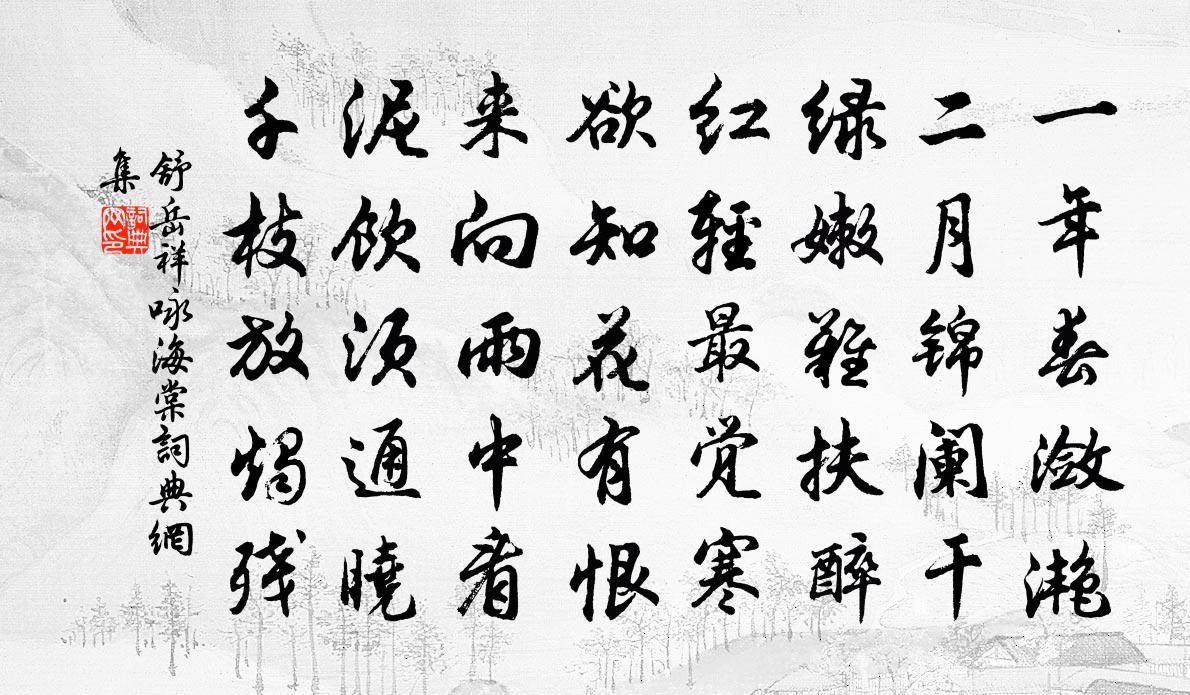 一年春潋滟
二月锦阑干
绿嫩难扶醉
红轻最觉寒
欲知花有恨
来向雨中看
泥饮须通晓
千枝放烛残
舒岳祥咏海棠詞典網
集
詞典